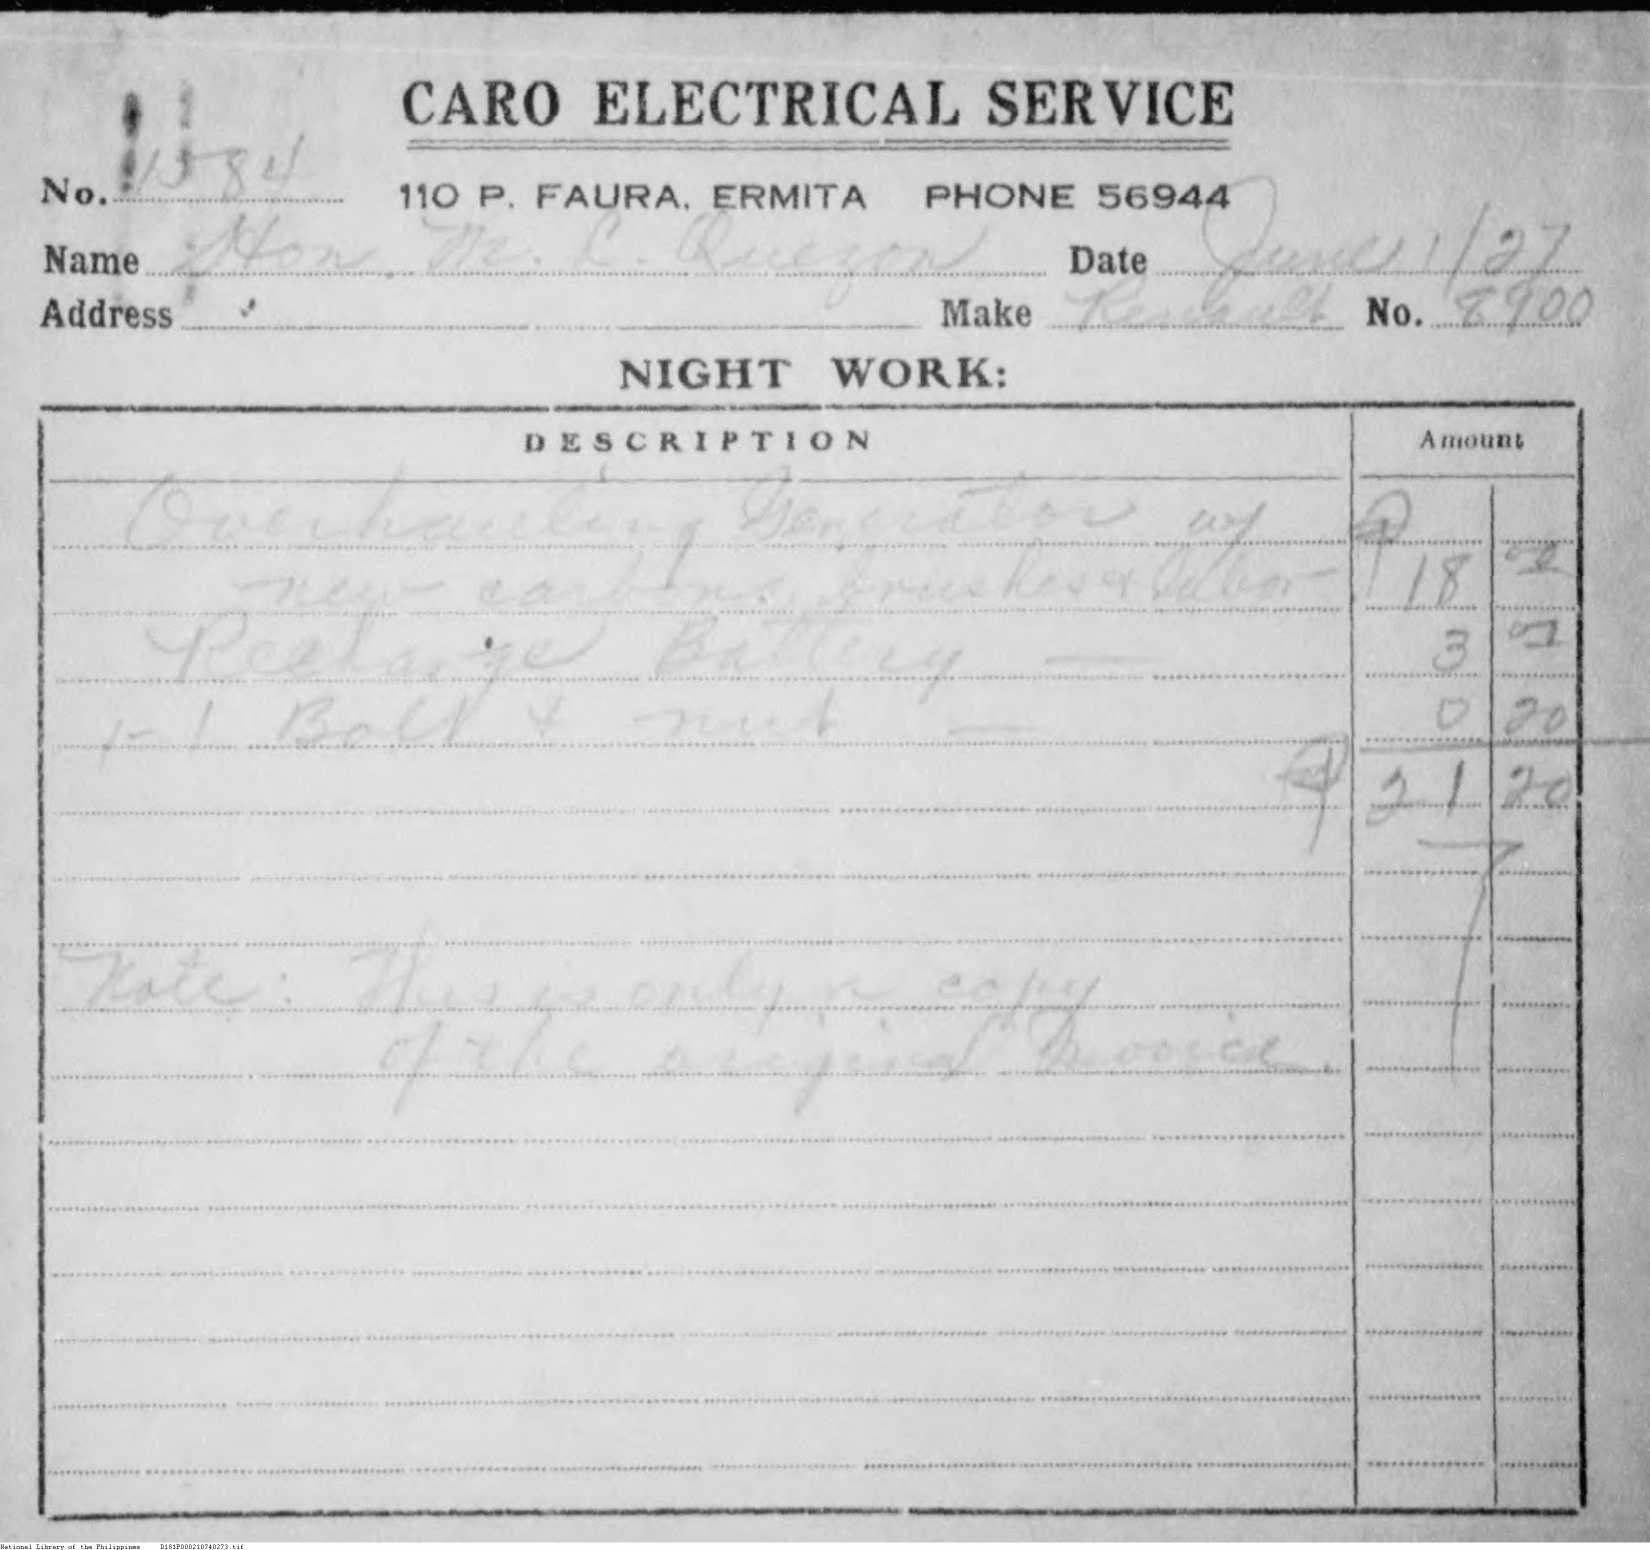 CARO ELECTRICAL SERVICE
No. 1584 110 P. FAURA, ERMITA PHONE 56944
Name Hon. M. L. Quezon Date June 1/27
Address Make Renault No. 8900
NIGHT WORK:
DESCRIPTION Amount
Overhauling Generator w/ ₱
new carbons brushes & labor 18 00
Recharge Battery — 3 00
1 Bolt & nut — 0 20
₱ 21 20
Note: This is only a copy
of the original Invoice.
National Library of the Philippines D181P000210740273.tif